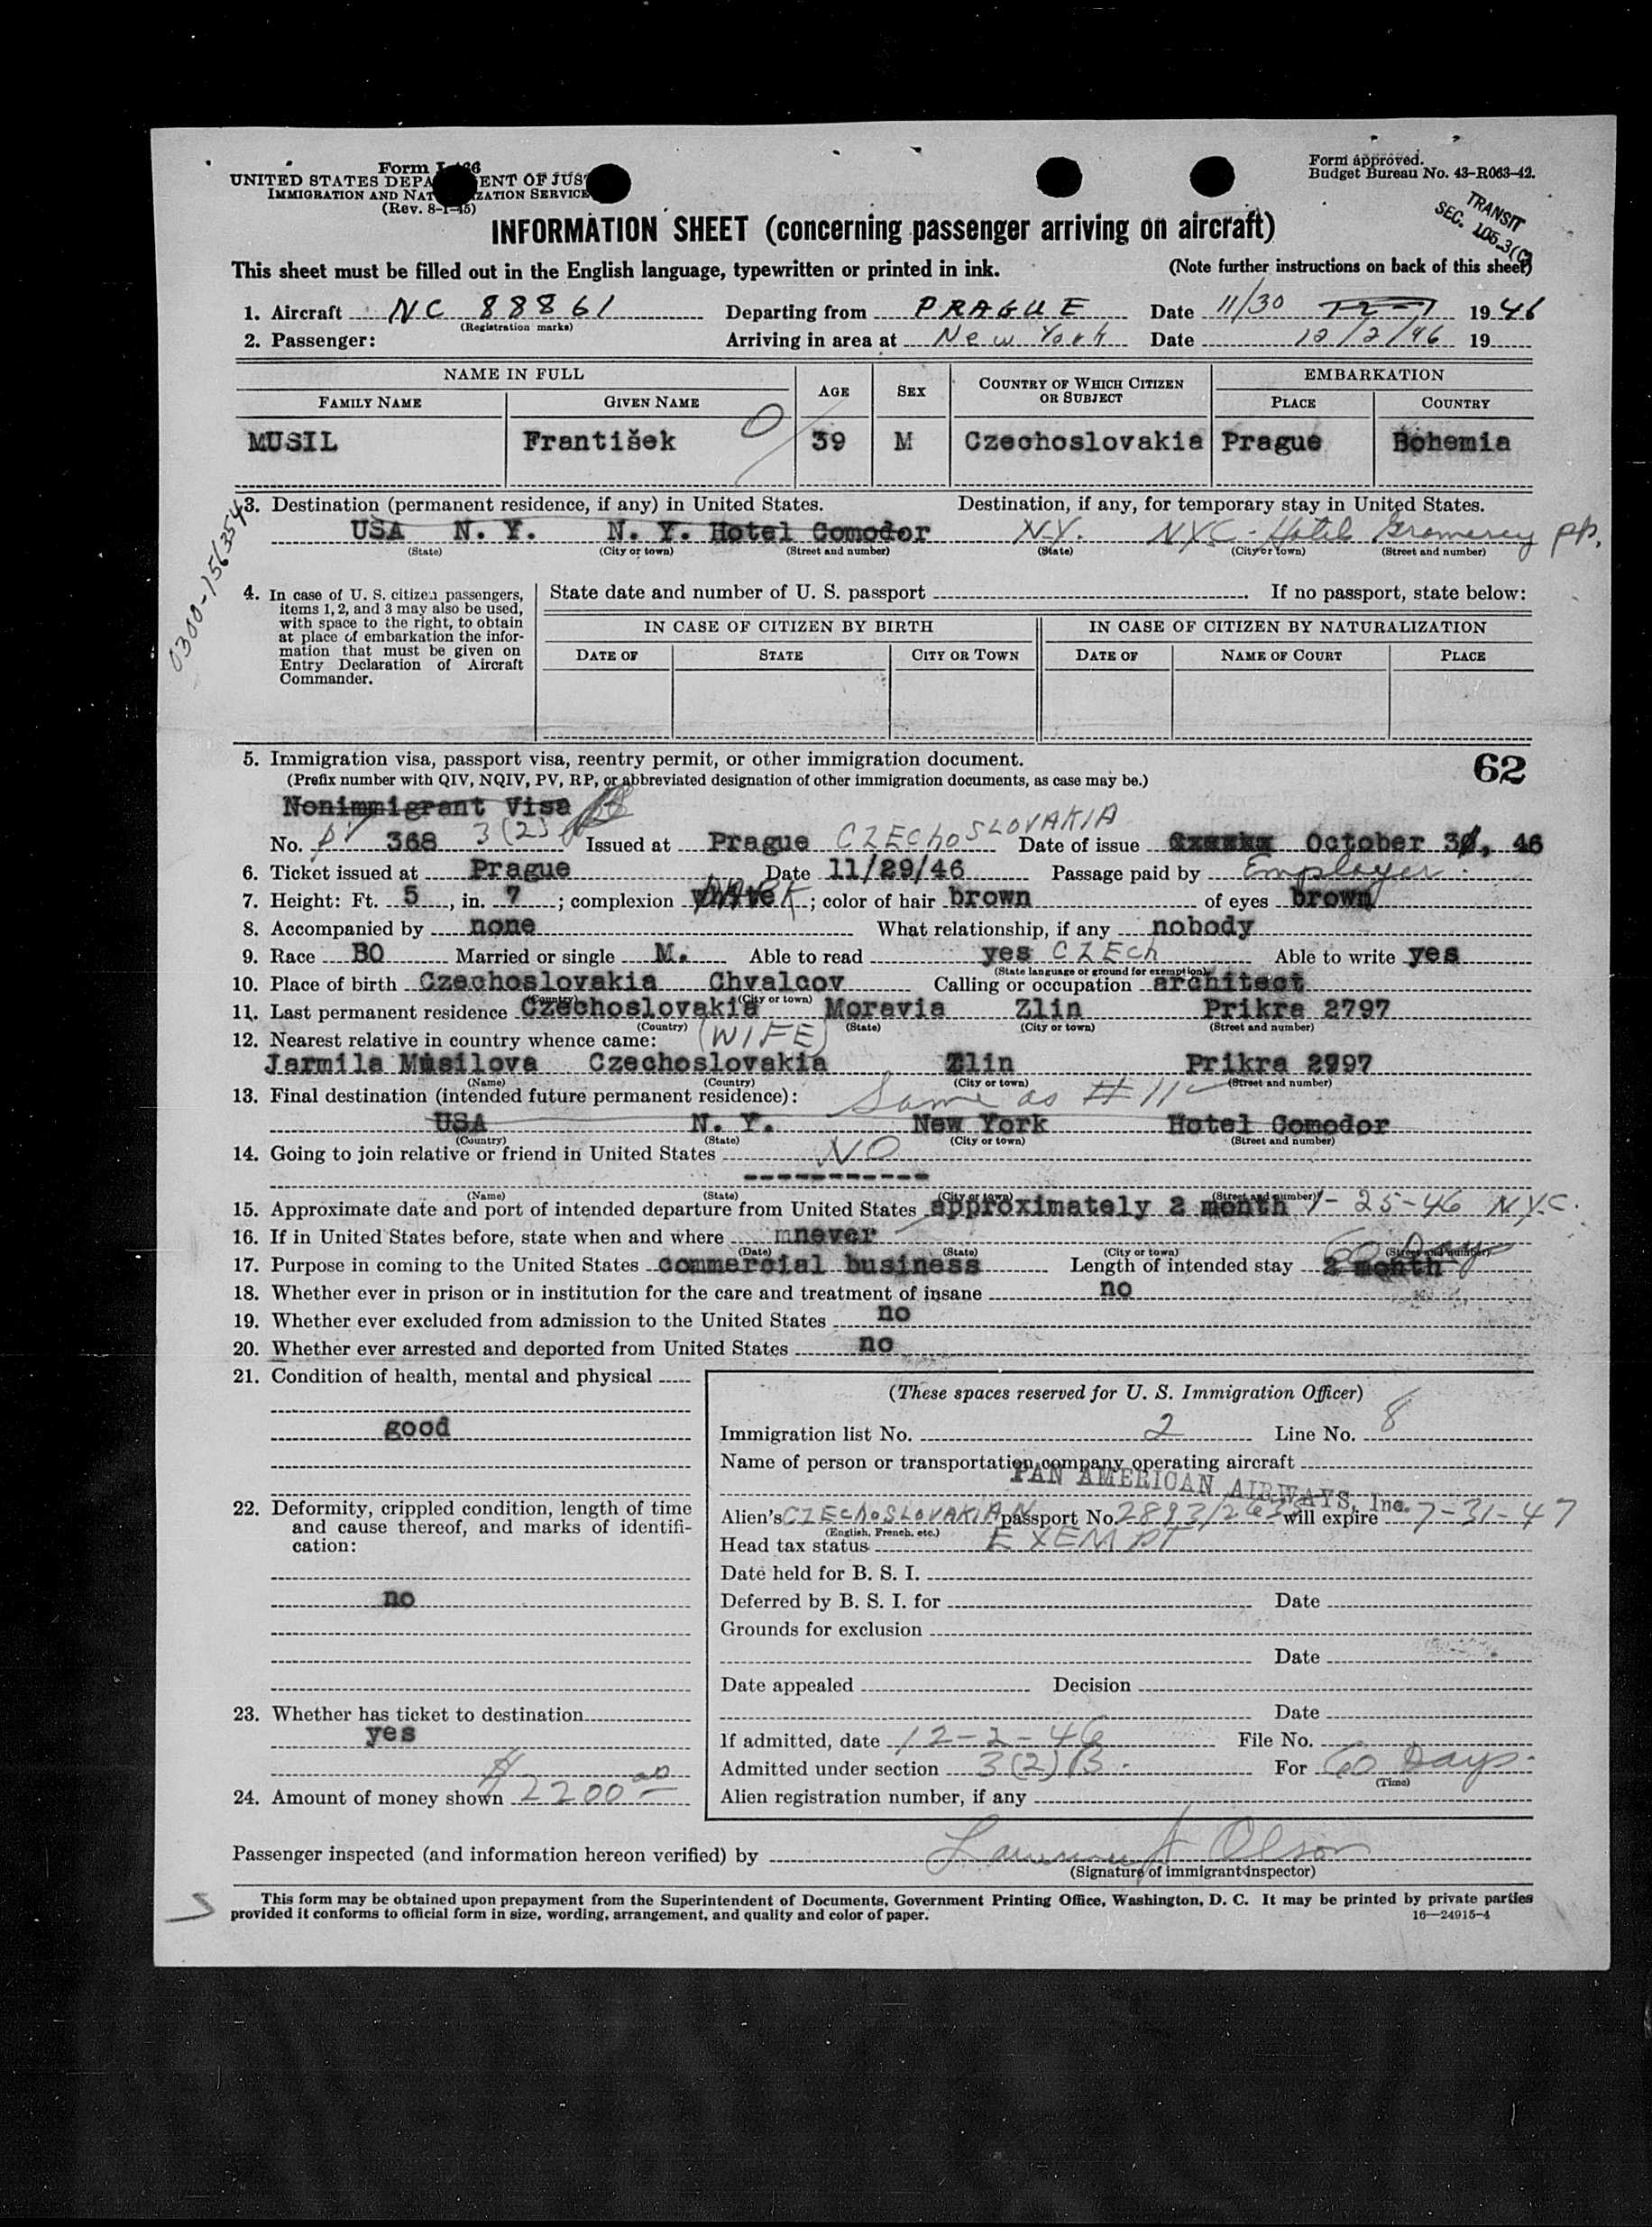 Form I-466
UNITED STATES DEPA ENT OF JUS
IMMIGRATION AND NAT IZATION SERVICE
(Rev. 8-1-45)
Form approved.
Budget Bureau No. 43-R063-42.
TRANSIT
SEC. 105.3(C)
INFORMATION SHEET (concerning passenger arriving on aircraft)
This sheet must be filled out in the English language, typewritten or printed in ink. (Note further instructions on back of this sheet)
1. Aircraft NC 88861 Departing from PRAGUE Date 11/30 12-1 1946
(Registration marks)
2. Passenger: Arriving in area at New York Date 12/2/46 19
NAME IN FULL AGE SEX COUNTRY OF WHICH CITIZEN OR SUBJECT EMBARKATION
FAMILY NAME GIVEN NAME PLACE COUNTRY
MUSIL František 39 M Czechoslovakia Prague Bohemia
0300-156354
3. Destination (permanent residence, if any) in United States. Destination, if any, for temporary stay in United States.
USA N. Y. N. Y. Hotel Comodor N.Y. NYC - Hotel Gramercy pk.
(State) (City or town) (Street and number) (State) (City or town) (Street and number)
4. In case of U. S. citizen passengers, items 1, 2, and 3 may also be used, with space to the right, to obtain at place of embarkation the information that must be given on Entry Declaration of Aircraft Commander.
State date and number of U. S. passport . If no passport, state below:
IN CASE OF CITIZEN BY BIRTH IN CASE OF CITIZEN BY NATURALIZATION
DATE OF STATE CITY OR TOWN DATE OF NAME OF COURT PLACE
5. Immigration visa, passport visa, reentry permit, or other immigration document. 62
(Prefix number with QIV, NQIV, PV, RP, or abbreviated designation of other immigration documents, as case may be.)
Nonimmigrant Visa
No. PV 368 3(2) Issued at Prague CZECHOSLOVAKIA Date of issue October 30, 46
6. Ticket issued at Prague Date 11/29/46 Passage paid by Employer
7. Height: Ft. 5, in. 7; complexion white DARK; color of hair brown of eyes brown
8. Accompanied by none What relationship, if any nobody
9. Race BO Married or single M. Able to read yes CZECH Able to write yes
(State language or ground for exemption)
10. Place of birth Czechoslovakia Chvalcov Calling or occupation architect
(Country) (City or town)
11. Last permanent residence Czechoslovakia Moravia Zlin Prikra 2797
(Country) (State) (City or town) (Street and number)
12. Nearest relative in country whence came: (WIFE)
Jarmila Musilova Czechoslovakia Zlin Prikra 2797
(Name) (Country) (City or town) (Street and number)
13. Final destination (intended future permanent residence): Same as # 11
USA N. Y. New York Hotel Comodor
(Country) (State) (City or town) (Street and number)
14. Going to join relative or friend in United States NO
-----------
(Name) (State) (City or town) (Street and number)
15. Approximate date and port of intended departure from United States approximately 2 month 1-25-46 N.Y.C.
16. If in United States before, state when and where never
(Date) (State) (City or town) (Street and number)
17. Purpose in coming to the United States commercial business Length of intended stay 2 month 60 Days
18. Whether ever in prison or in institution for the care and treatment of insane no
19. Whether ever excluded from admission to the United States no
20. Whether ever arrested and deported from United States no
21. Condition of health, mental and physical
good
22. Deformity, crippled condition, length of time and cause thereof, and marks of identification:
no
23. Whether has ticket to destination
yes
24. Amount of money shown $2200.00
(These spaces reserved for U. S. Immigration Officer)
Immigration list No. 2 Line No. 8
Name of person or transportation company operating aircraft
PAN AMERICAN AIRWAYS, Inc.
Alien's CZECHOSLOVAKIAN passport No. will expire 7-31-47
(English, French, etc.)
Head tax status EXEMPT
Date held for B. S. I.
Deferred by B. S. I. for Date
Grounds for exclusion
Date
Date appealed Decision
Date
If admitted, date 12-2-46 File No.
Admitted under section 3(2)B. For 60 Days.
(Time)
Alien registration number, if any
Passenger inspected (and information hereon verified) by Olson
(Signature of immigrant inspector)
This form may be obtained upon prepayment from the Superintendent of Documents, Government Printing Office, Washington, D. C. It may be printed by private parties
provided it conforms to official form in size, wording, arrangement, and quality and color of paper. 16—24915-4